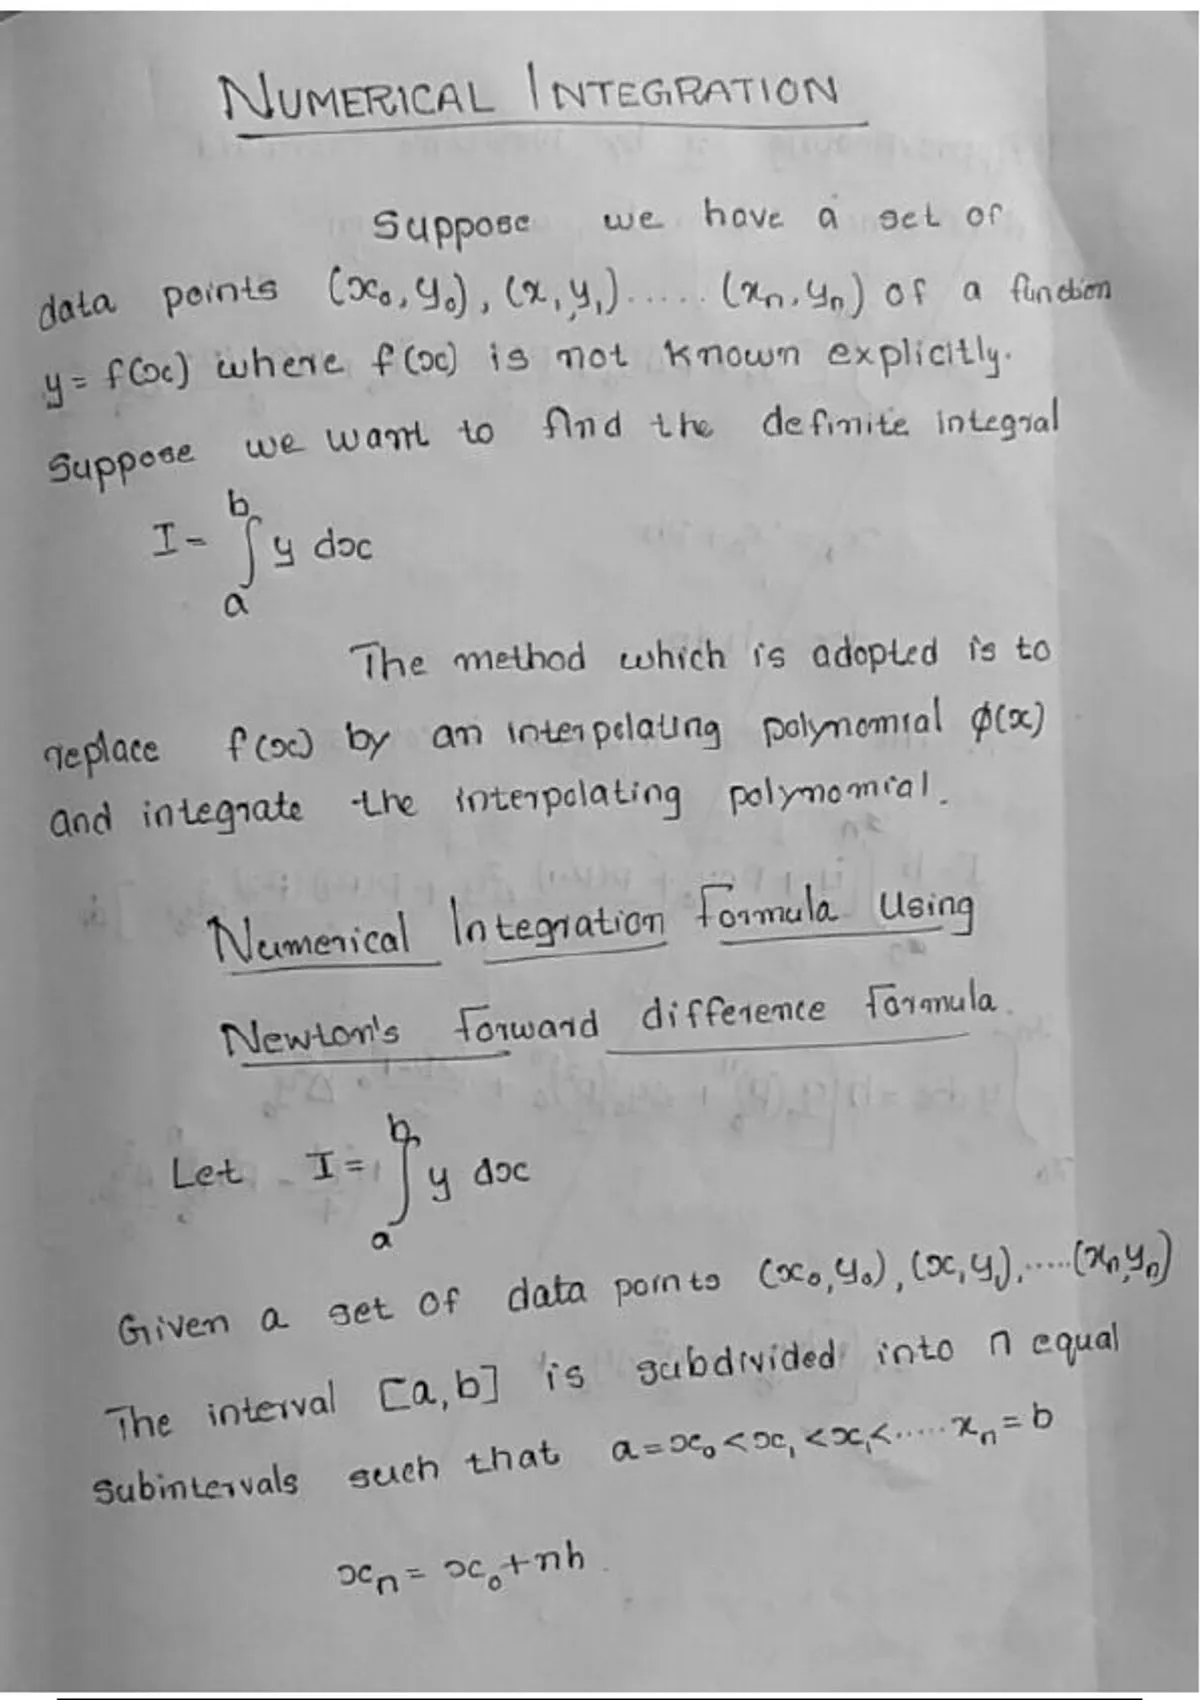 NUMERICAL INTEGRATION
Suppose we have a set of
data points (x₀, y₀), (x, y₁)...... (xₙ, yₙ) of a function
y = f(x) where f(x) is not known explicitly.
Suppose we want to find the definite integral
I = ∫ₐᵇ y dx
The method which is adopted is to
replace f(x) by an interpolating polynomial φ(x)
and integrate the interpolating polynomial.
Numerical Integration Formula Using
Newton's forward difference formula.
Let I = ∫ₐᵇ y dx
Given a set of data points (x₀, y₀), (x₁ y₁), ..... (xₙ, yₙ)
The interval [a, b] is subdivided into n equal
subintervals such that a = x₀ < x₁ < x₁ < ..... xₙ = b
xₙ = x₀ + nh